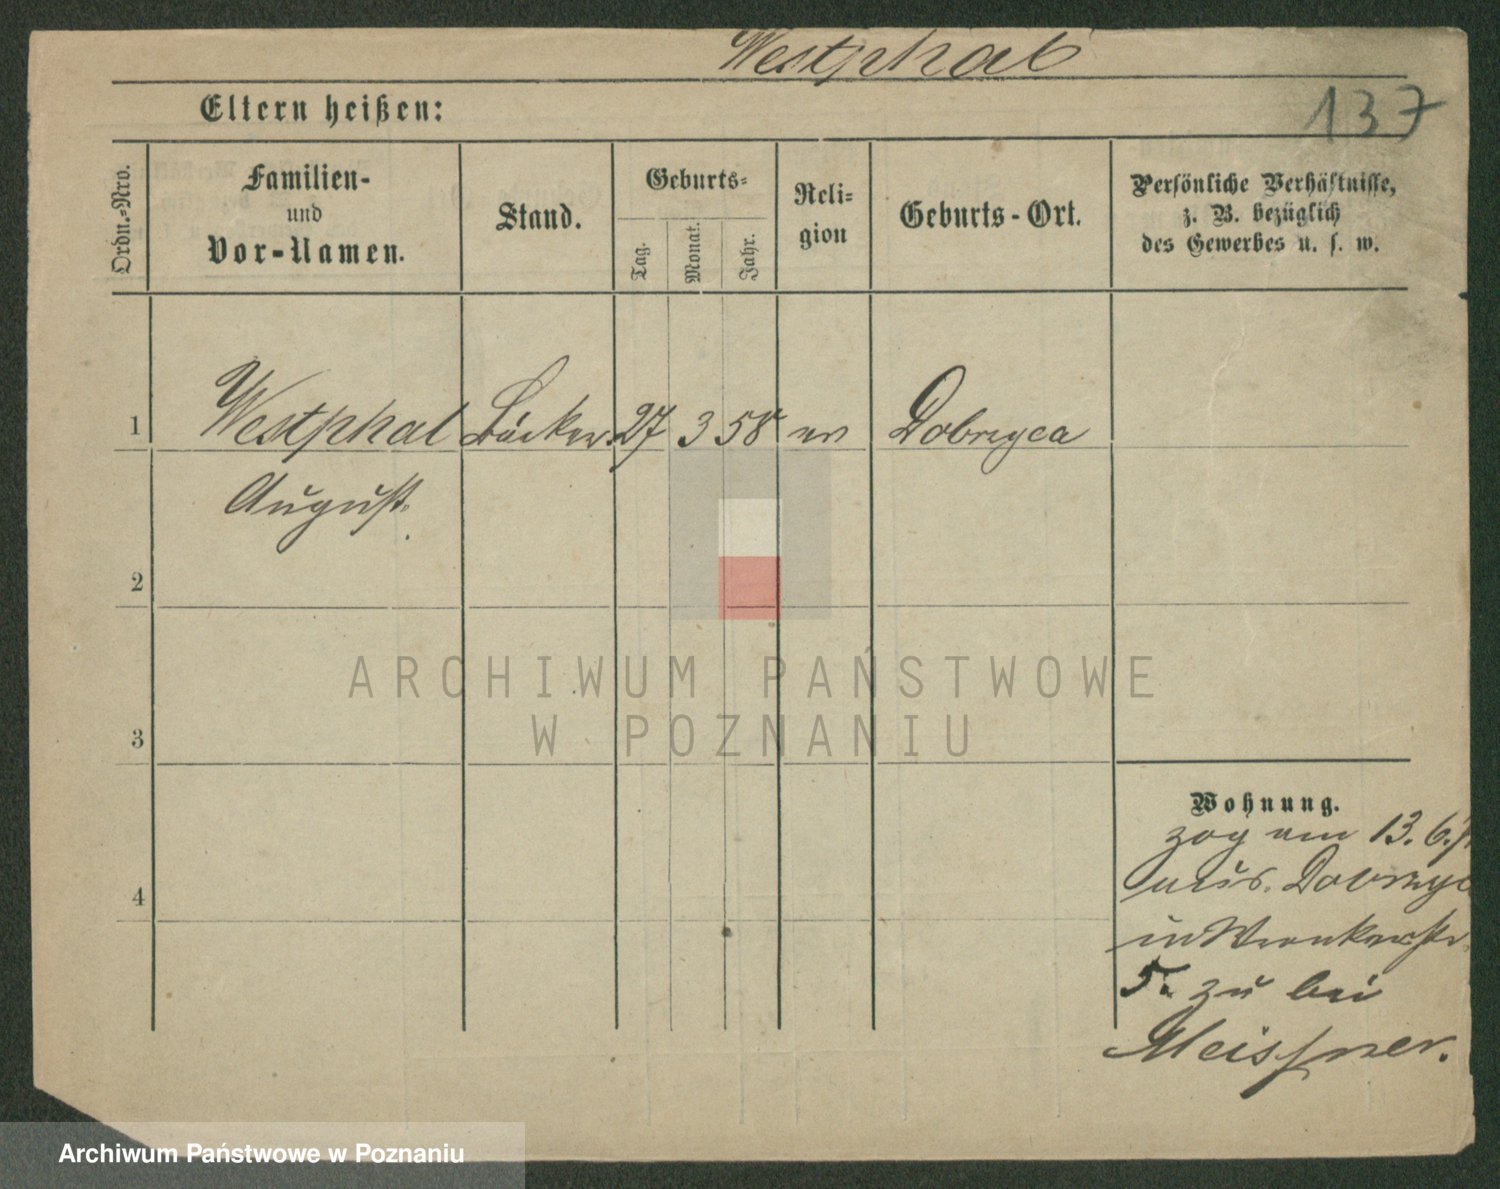 Westphal
137
Eltern heißen:
Ordn.-Nro.
Familien-
und
Vor-Namen.
Stand.
Geburts-
Tag.
Monat.
Jahr.
Reli-
gion
Geburts-Ort.
Persönliche Verhältnisse,
z. B. bezüglich
des Gewerbes u. s. w.
1 Westphal Bäcker. 27 3 58 ev Dobrzyca
August.
2
3
4
Wohnung.
zog am 13. 6.
aus. Dobrzyc
in Wronkerstr.
5. zu bei
Meissner.
ARCHIWUM PAŃSTWOWE
W POZNANIU
Archiwum Państwowe w Poznaniu